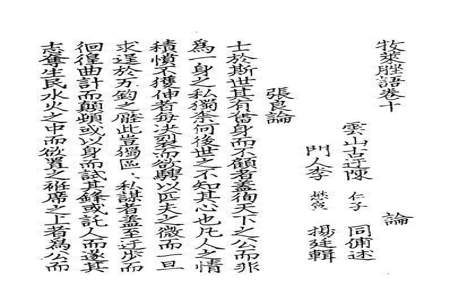 牧萊脞語卷十　論
雲山古迂陳 仁子 同俌述
門人李 懋宣 揚廷輯
張良論
士於斯世其有奮身而不顧者蓋徇天下之公而非
為一身之私獨柰何後世之不知其心也凡人之情
積憤不獲伸者每決裂而欲興以匹夫之微而一旦
求逞於万鈞之壓此豈獨區〻私謀者蓋至迂步而
徊徨曲計而顛頓或以身而試其鋒或託人而遂其
志奪生民水火之中而欲置之袵席之上者為公而